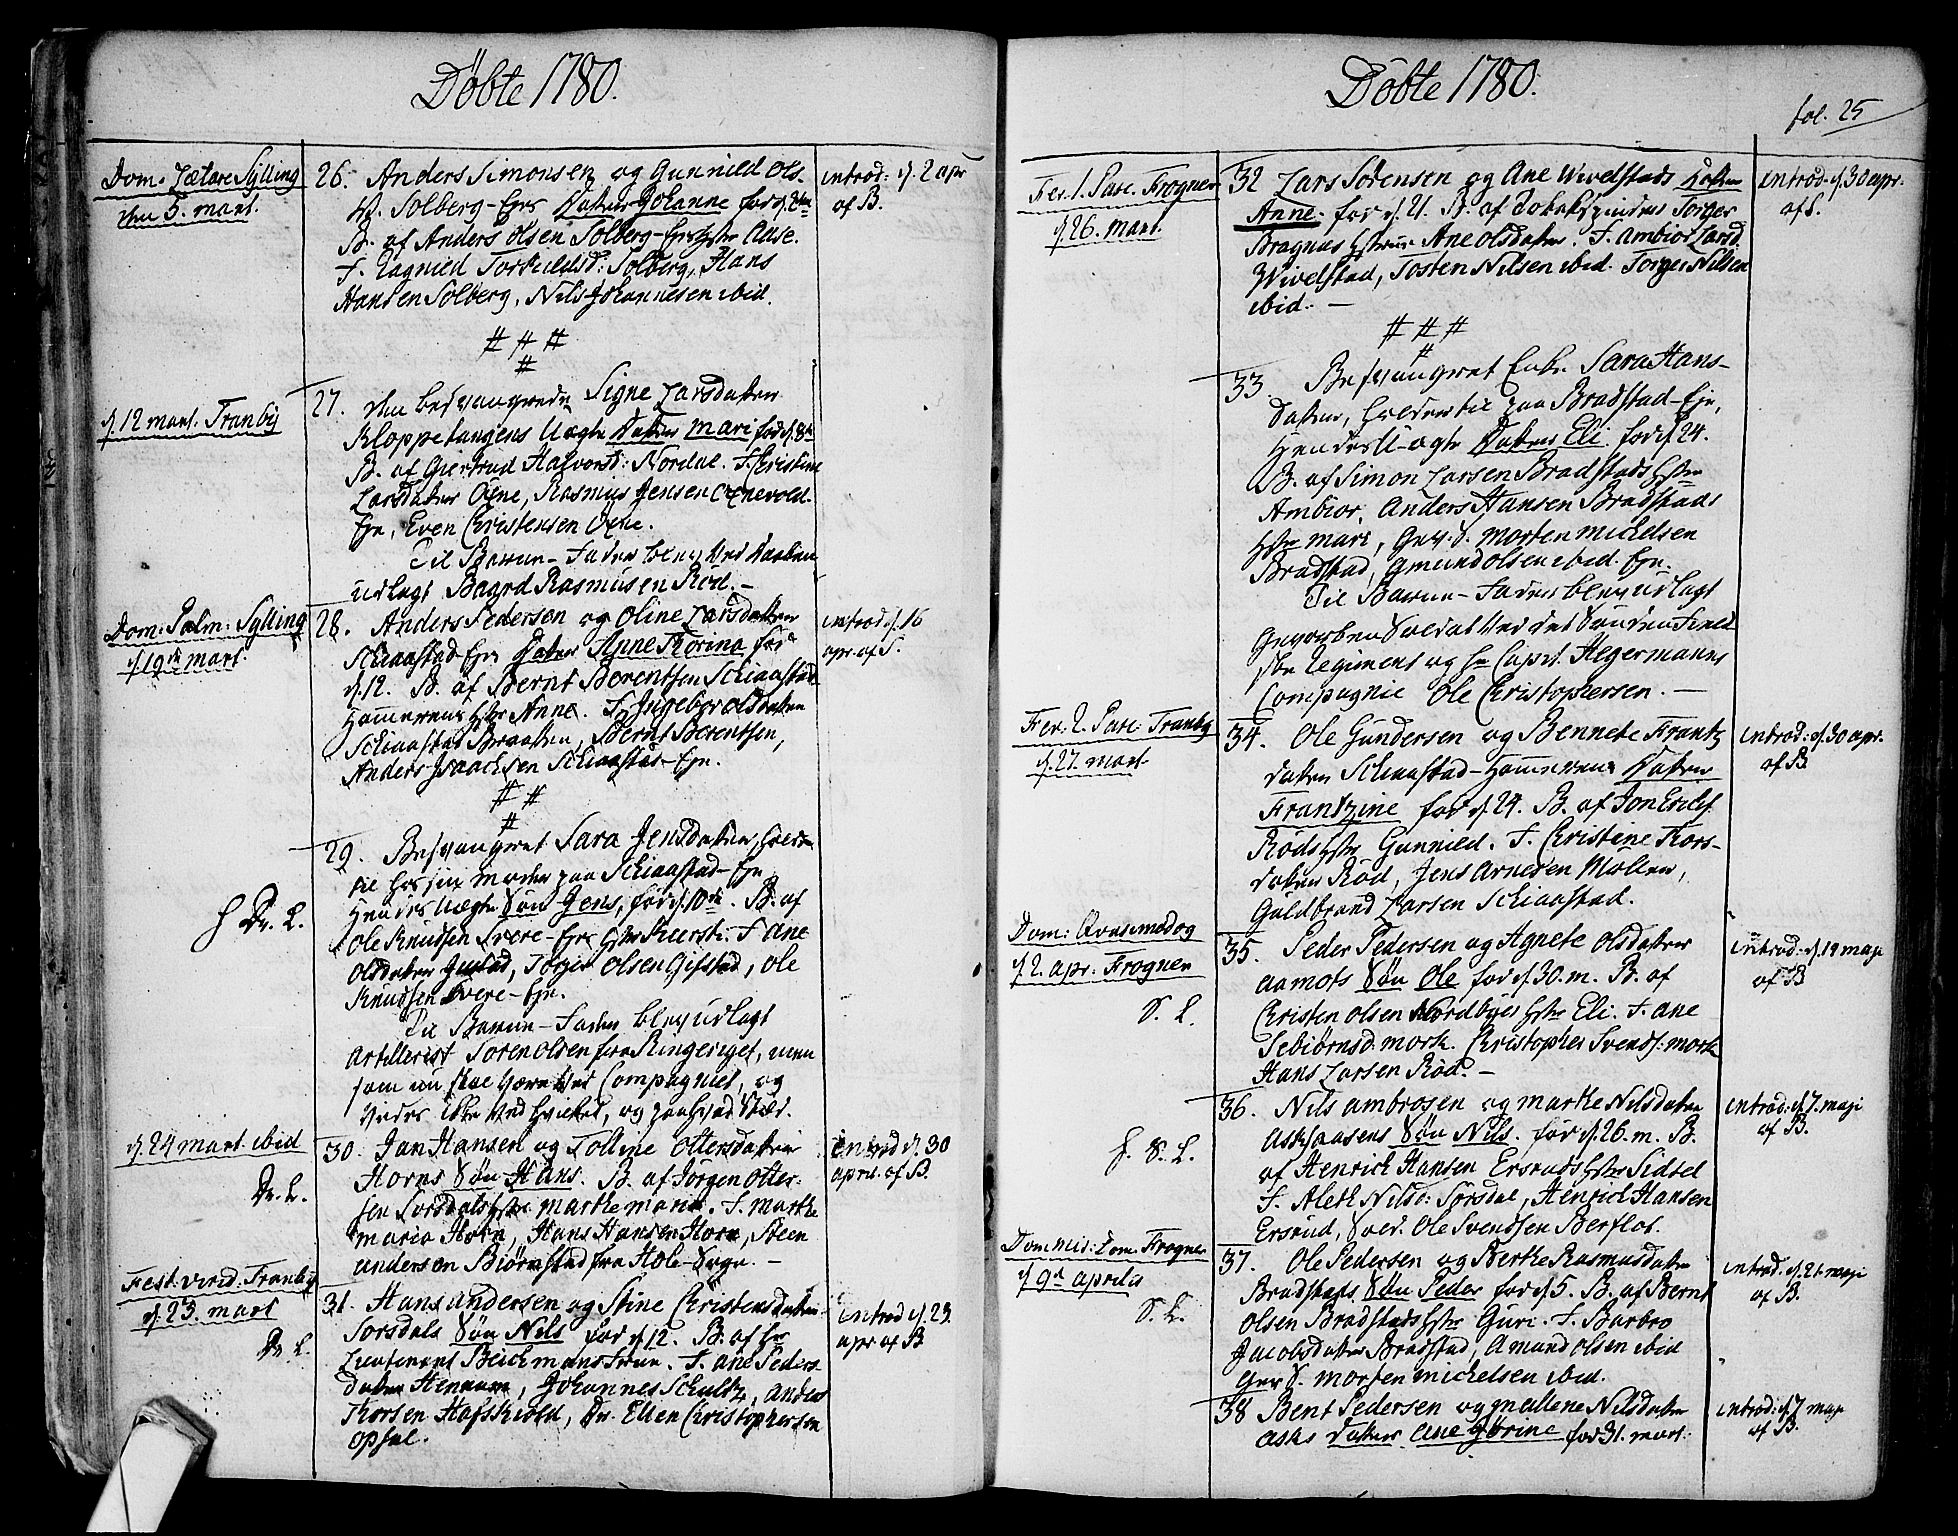 Döbte 1780.
Dom. Lætare Sylling
den 5. mart.
26. Anders Simonsen og Gunnild Ols
D. Solberg-Eyes Datter Johanne fød d. 2den
B. af Anders Olsen Solberg-Eyes Hstr Aase.
F. Ragnild Torkildsd: Solberg, Hans
Hansen Solberg, Nils Johannesen ibid.
introd: d. 2 apr
af B.
# # #
#
d. 12 mart. Tranby
27. Den besvangrede Signe Larsdatter
Kloppetangens Uægte Datter Mari fød d. 8de
B. af Giertrud Halvorsd: Nordal. F. Christine
Larsdatter Öyne, Rasmus Jensen Egnevold
Eje, Even Christensen Öyne.
Til Barne-Fader blev ved Daaben
udlagt Baard Rasmusen Röd.
Dom: Palm: Sylling
d. 19de mart.
28. Anders Pedersen og Oline Larsdatter
Schiaastad Eje Datter Anne Thorina fød
d. 12. B. af Bernt Berentsen Schiaastad
Hammerens Hstr Anne. F. Ingebor Olsdatter
Schiaastad Braaten, Bernt Berentsen,
Anders Isaachsen Schiaastad-Eje.
introd d. 16
apr. af S.
# #
#
29. Besvangret Sara Jensdatter, holder
til hos sin moder paa Schiaastad-Eje
Hendes Uægte Sön Jens, fød d. 10de. B. af
Ole Knudsen Svere-Eje Hstr Kiersti. F. Ane
Olsdatter Gustad, Torjer Olsen Gifstad, Ole
Knudsen Svere-Eje.
Til Barne-Fader blev udlagt
Artillerist Soren Olsen fra Ringeriget, men
som nu skal være ved Compagniet, og
vides ikke ved hvilket, og paa hvad Stæd.
f Dr. L.
d. 24 mart. ibid
Dr. L.
30. Jan Hansen og Tolline Ottersdatter
Horns Sön Hans. B. af Jörgen Otter-
sen Sorsdals Hstr Marthe Maria. F. Marthe
Maria Horn, Hans Hansen Horn, Steen
Andersen Biörnstad fra Hole-Sogn.
introd d. 30
april. af B.
Fest. virid: Tranby
d. 23. mart
Dr. L.
31. Hans Andersen og Stine Christensdatter
Sorsdals Sön Nils fød d. 12. B. af Hr
Lieutenant Beichmans Frue. F. Ane Peders
Datter Hennum, Johannes Schultz, Anders
Thorsen Hafskiold, Dr. Ellen Christophersen
Opsal.
introd d. 23.
apr af B
Döbte 1780.
fol. 25
Fer. 1. Pasc. Frogner
d. 26. mart.
32 Lars Sörensen og Ane Wivelstads Datter
Anne. fød d. 21. B. af Tobakspinder Torger
Bragnæs Hstrue Ane Olsdatter. F. Ambior Larsd.
Wivelstad, Tosten Nilsen ibid. Torger Nilsen
ibid.
introd: d. 30 apr.
af S.
# # #
#
33. Besvangret Enke Sara Hans-
datter, holder til paa Bradstad-Eje,
Hendes U-ægte Datter Eli fød d. 24.
B. af Simon Larsen Bradstads Hstr
Ambior, Anders Hansen Bradstads
Hstr Mari, Gev. S. Morten Michelsen
Bradstad, Gmund Olsen ibid. Eje.
Til Barne-Fader blev udlagt
Gevorben Soldat ved det Söndenfield
ske Regiment og Hr Capt. Hegermanns
Compagnie Ole Christophersen.
Fer. 2. Pasc. Tranby
d. 27. mart
34. Ole Gundersen og Bennete Frantz
datter Schiaastad-Hammerens Datter
Frantzine fød d. 24. B. af Jon Erichs.
Röds Hstr Gunnild. F. Christine Thors-
datter Röd, Jens Arnesen Möllen,
Guldbrand Larsen Schiaastad.
introd: d. 30 apr.
af B
Dom: Qvasimodog
d. 2. apr: Frogner
S. L.
35. Peder Pedersen og Agnete Olsdatter
Aamots Sön Ole fød d. 30. m. B. af
Christen Olsen Nordbyes Hstr Eli. F. Ane
Sebiörnsd. Mörk. Christopher Svends. Mörk
Hans Larsen Röd.
introd: d. 14 maji
af B
f. S. L.
36. Nils Ambrosen og Marthe Nilsdatter
Askaasens Sön Nils. fød d. 26. m. B.
af Henrich Hansen Ersruds Hstr Sidsel
F. Aleth Nilsd: Sorsdal, Henrich Hansen
Ersrud, Sold. Ole Svendsen Berflot.
introd: d. 7. maji
af B.
Dom mis: Dom. Frogner
d. 9de aprilis
S. L.
37. Ole Pedersen og Berthe Rasmusdatter
Bradstads Sön Peder fød d. 5. B. af Bernt
Olsen Bradstads Hstr Guri. F. Barbro
Jacobsdatter Bradstad, Amund Olsen ibid
Gev S. Morten Michelsen ibid.
introd: d. 21. maji
af B.
38 Bent Pedersen og Mallene Nilsdatter
Asks Datter Ane Gorine fød 31. mart.
introd: d. 7 maji
af B.